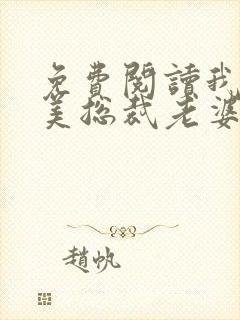 免費閱讀我
美總裁老婆
趙帆